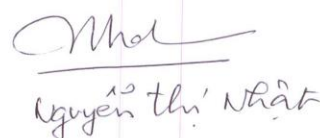 Nhd
Nguyễn thị Nhật